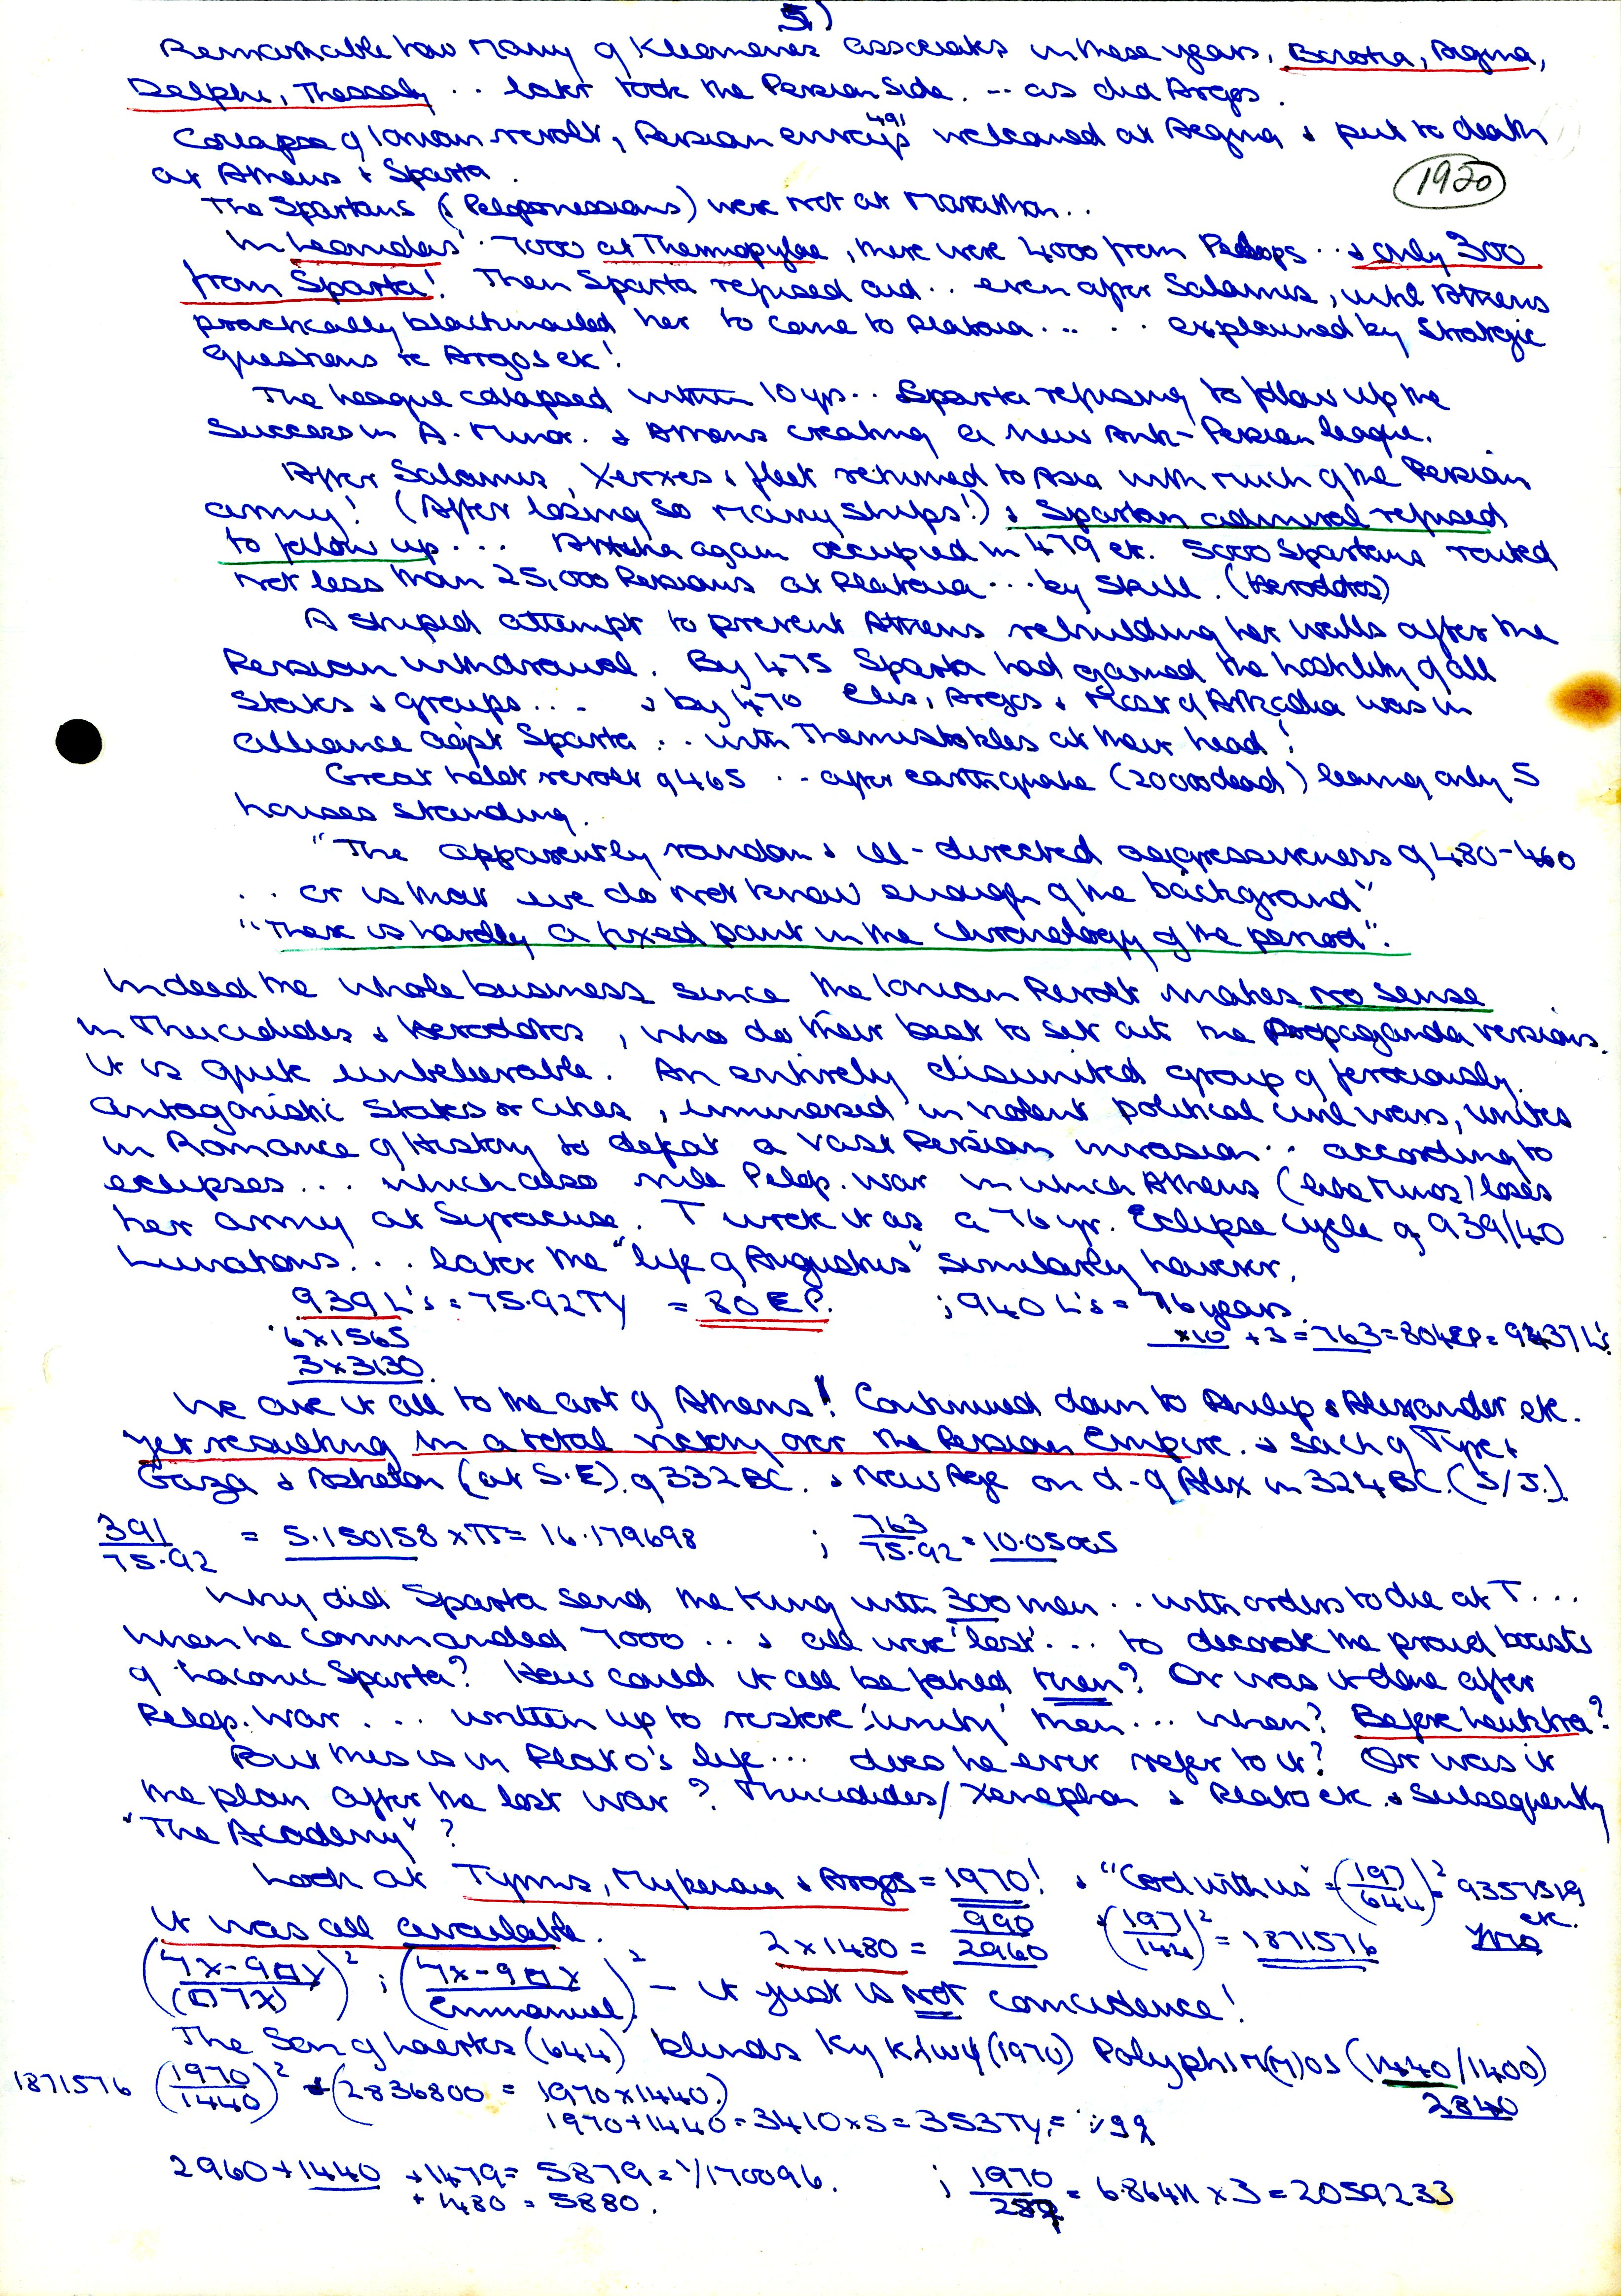 5)
Remarkable how many of Kleomenes associates in these years, Boeotia, Aegina,
Delphi, Thessaly .. later took the Persian side. -- as did Argos.
Collapse of Ionian revolt, Persian envoys 491 welcomed at Aegina & put to death
at Athens & Sparta.
1920
The Spartans (& Peloponnesians) were not at Marathon..
In Leonidas' 7000 at Thermopylae, there were 4000 from Pelops .. & only 300
from Sparta! Then Sparta refused aid .. even after Salamis, until Athens
practically blackmailed her to come to Plataia ... .. explained by strategic
questions re Argos etc!
The League collapsed within 10 yrs .. Sparta refusing to follow up the
success in A. Minor. & Athens creating a new Anti-Persian league.
After Salamis, Xerxes & fleet returned to Asia with much of the Persian
army! (After losing so many ships!) & Spartan admiral refused
to follow up ... Attika again occupied in 479 etc. 5000 Spartans routed
not less than 25,000 Persians at Plataia ... by skill. (Herodotos)
A stupid attempt to prevent Athens rebuilding her walls after the
Persian withdrawal. By 475 Sparta had gained the hostility of all
states & groups ... & by 470 Elis, Argos & most of Arkadia was in
alliance agst Sparta .. with Themistokles at their head!
Great helot revolt of 465 .. after earthquake (20000 dead) leaving only 5
houses standing.
"The apparently random & ill-directed aggressiveness of 480-460
.. or is that we do not know enough of the background"
"There is hardly a fixed point in the chronology of the period".
Indeed the whole business since the Ionian Revolt makes no sense
in Thucidides & Herodotos, who do their best to set out the Propaganda versions.
It is quite unbelievable. An entirely disunited group of ferociously
antagonistic states or cities, immersed in violent political civil wars, unites
in Romance of History to defeat a vast Persian invasion .. according to
eclipses ... which also rule Pelop. War in which Athens (like Minos) loses
her army at Syracuse. T wrote it as a 76 yr. Eclipse cycle of 939/40
Lunations ... later the "life of Augustus" similarly however.
939 L's = 75.92 TY = 80 E.P. ; 940 L's = 76 years
6x1565 x10 + 3 = 763 = 804 EP = 9437 L's.
3x3130
We owe it all to the art of Athens! Continued down to Philip & Alexander etc.
Yet resulting in a total victory over the Persian Empire. & sack of Tyre &
Gaza & Askelon (at S.E) of 332 BC. & New Age on d- of Alex in 324 BC. (S/J.)
391/75.92 = 5.150158 x π = 16.179698 ; 763/75.92 = 10.05005
Why did Sparta send the King with 300 men .. with orders to die at T ...
when he commanded 7000 .. & all were 'lost' ... to decorate the proud boasts
of Laconic Sparta? How could it all be faked then? Or was it done after
Pelop. War ... written up to restore 'unity' then ... when? Before Leuktra?
But this is in Plato's life ... does he ever refer to it? Or was it
the plan after the lost war? Thucidides/ Xenephon & Plato etc & subsequently
"The Academy"?
Look at Tyrins, Mykenae & Argos = 1970! & "God with us" = (197/644)² = 9357519 etc.
It was all available. 2 x 1480 = 990 2960 & (197/144)² = 1871576
(7x-9□y/(□7x))² ; (7x-9□x/Emmanuel)² - it just is not coincidence!
The Son of Laertes (644) blinds Kyklwψ (1970) Polyphim(m)os (1440/1400)
2840
1871576 (1970/1440)² & (2836800 = 1970 x 1440)
1970 + 1440 = 3410 x 5 = 353 TY =
2960 + 1440 + 1479 = 5879 = 1/170096. ; 1970/287 = 6.86411 x 3 = 2059233
+ 1480 = 5880.